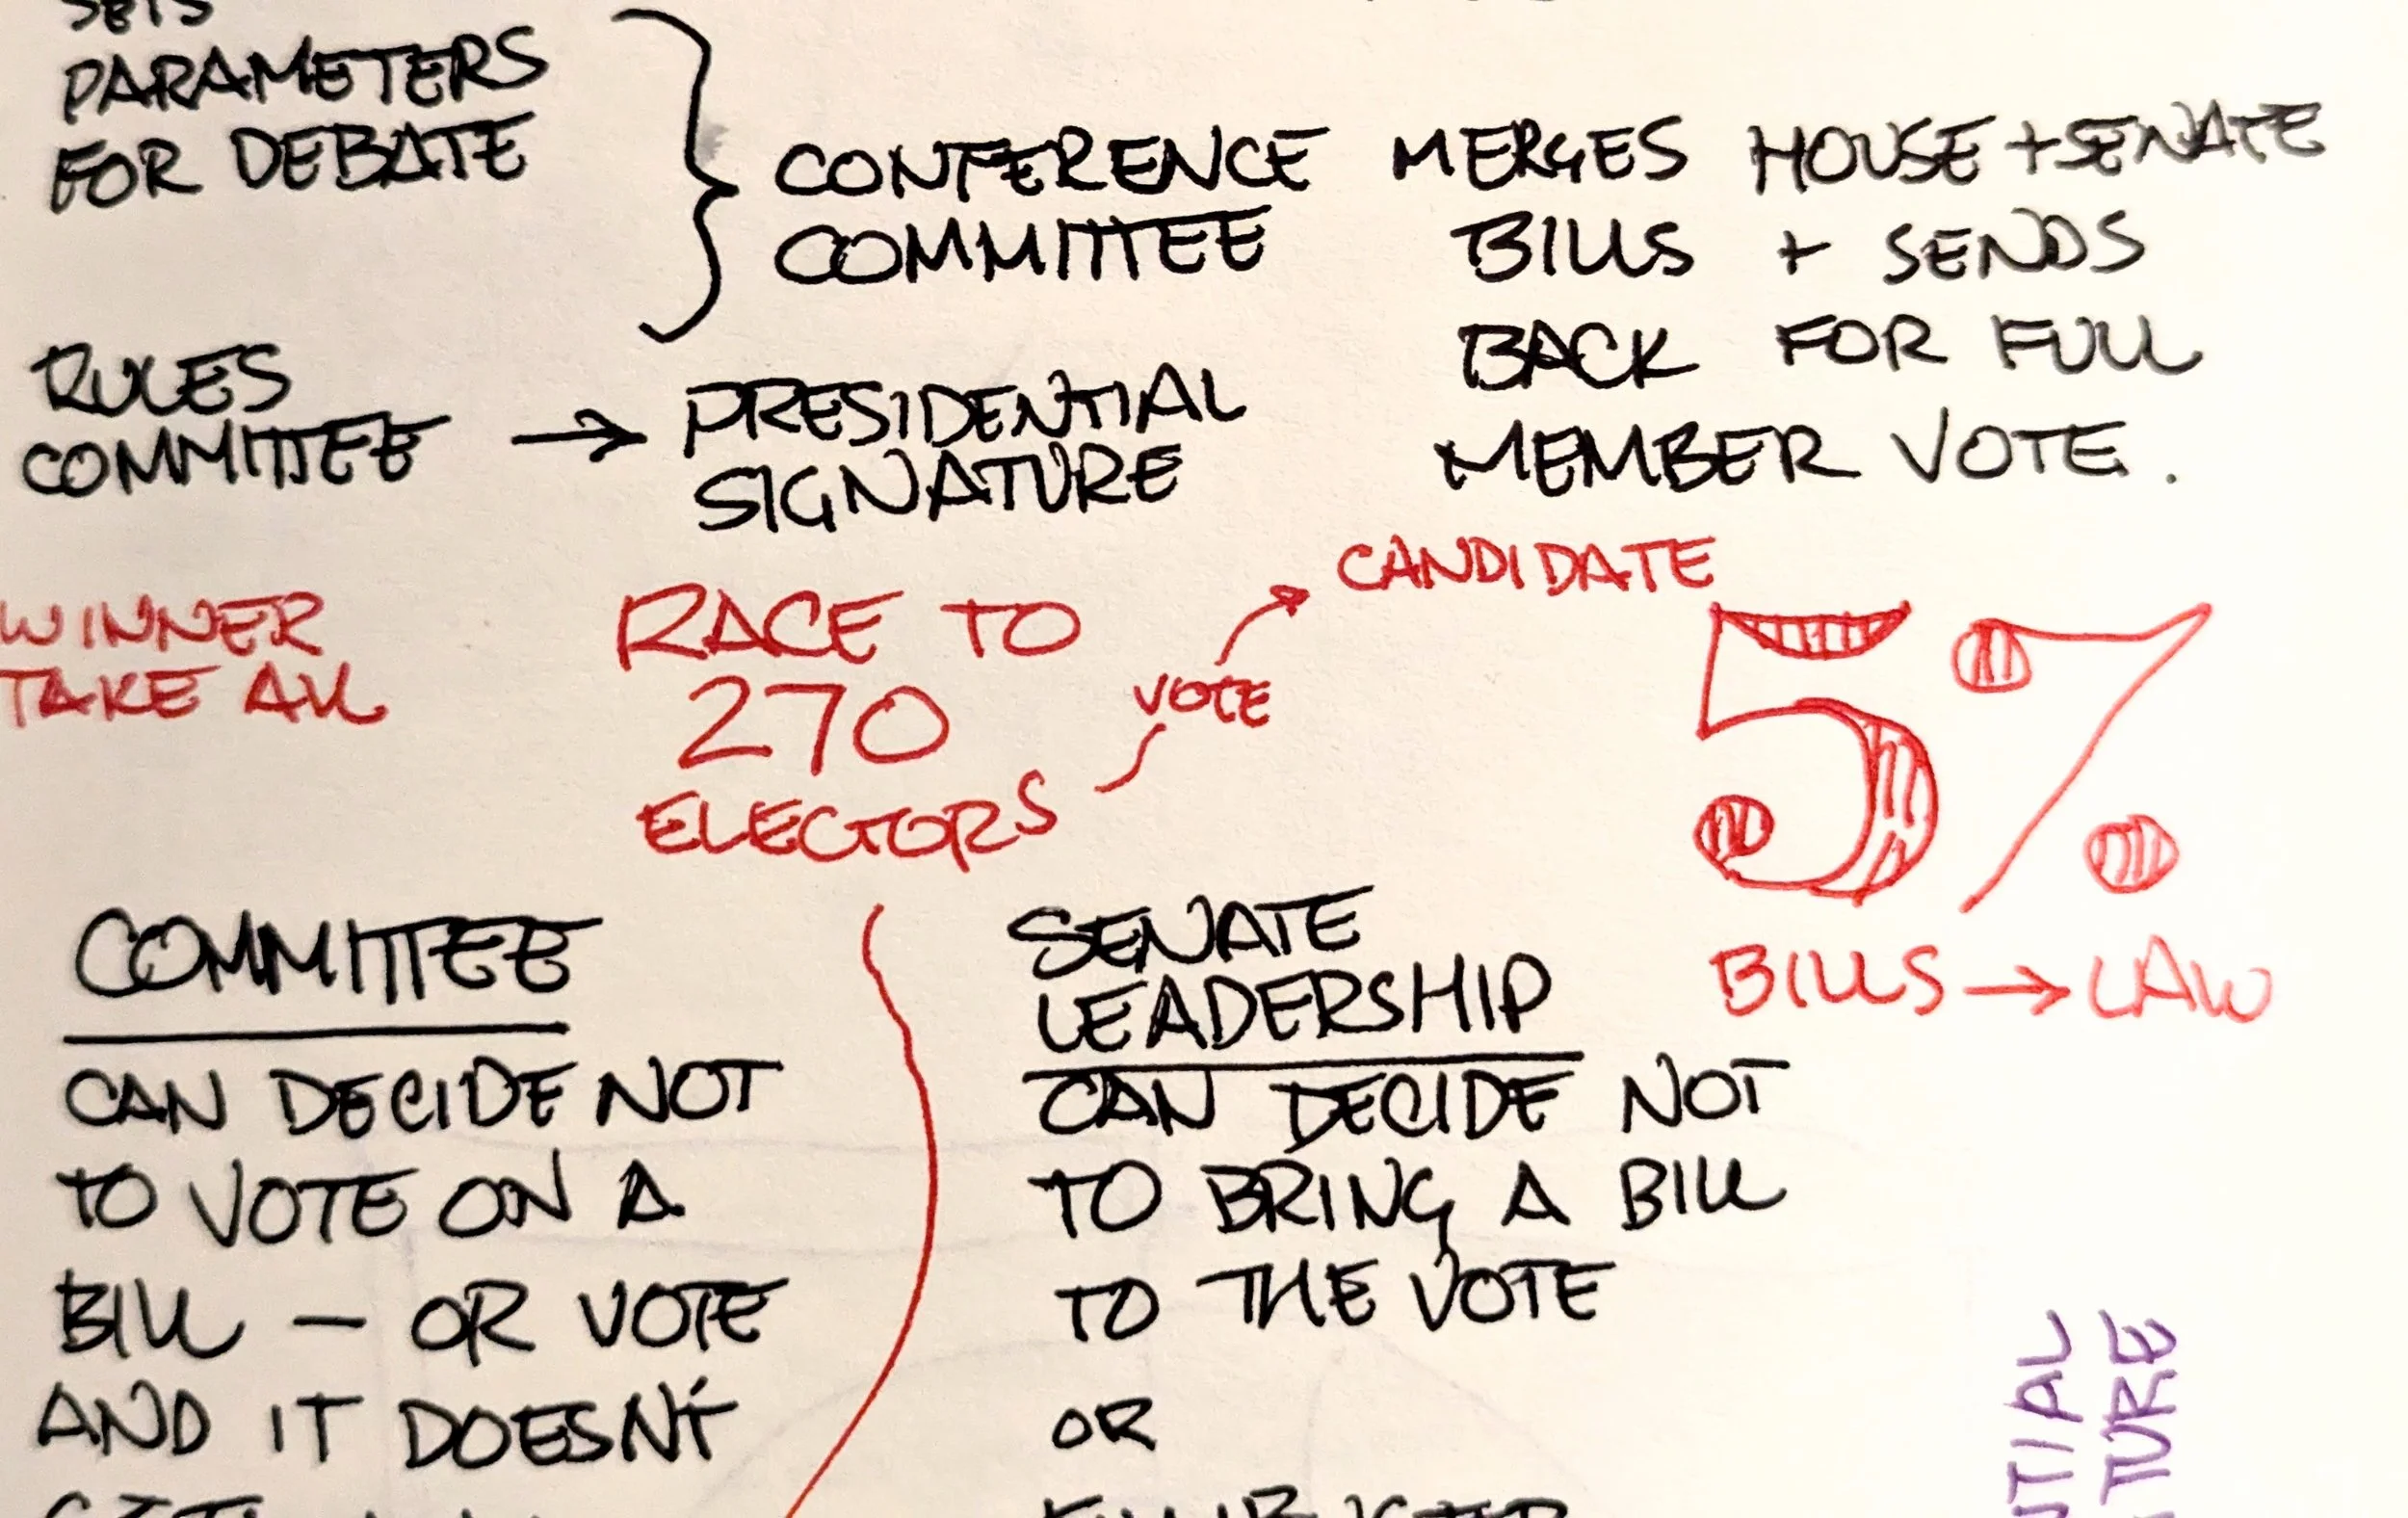 SETS
PARAMETERS
FOR DEBATE
CONFERENCE
COMMITTEE
MERGES HOUSE + SENATE
BILLS + SENDS
BACK FOR FULL
MEMBER VOTE.
RULES
COMMITTEE → PRESIDENTIAL
SIGNATURE
WINNER
TAKE ALL
RACE TO
270
ELECTORS
VOTE
CANDIDATE
5%
BILLS → LAW
COMMITTEE
CAN DECIDE NOT
TO VOTE ON A
BILL — OR VOTE
AND IT DOESN'T
SENATE
LEADERSHIP
CAN DECIDE NOT
TO BRING A BILL
TO THE VOTE
OR
FILIBUSTER
NTIAL
TURE